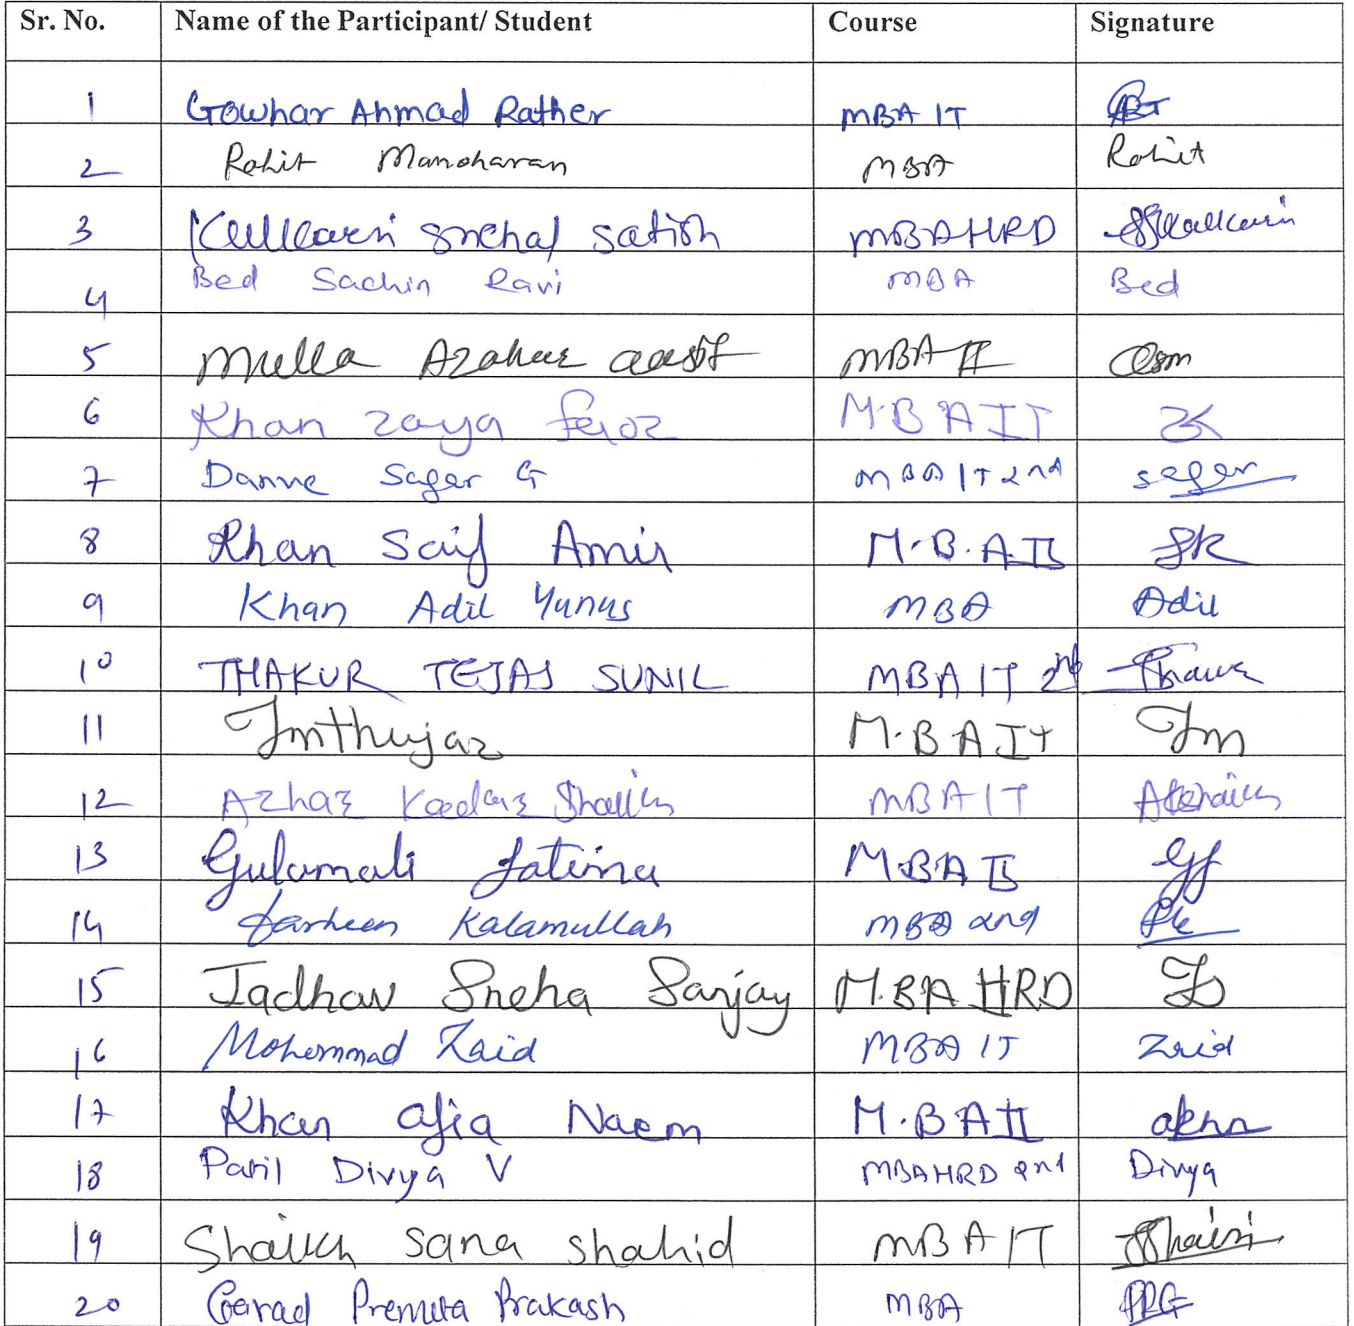 Sr. No. Name of the Participant/ Student Course Signature
1 Gowhar Ahmad Rather MBA IT
2 Rohit Manoharan MBA Rohit
3 Kulkarni Snehal Satish MBA HRD SSKulkarni
4 Bed Sachin Ravi MBA Bed
5 Mulla Azahar aasif MBA II
6 Khan zaya feroz M.B.A II ZK
7 Danve Sagar G MBA IT 2nd sagar
8 Khan Saif Amir M.B.A II SK
9 Khan Adil Yunus MBA Adil
10 THAKUR TEJAS SUNIL MBA IT 2nd
11 Imthiyaz M.B A IT Im
12 Azhar Kadar Shaikh MBA IT AKshaikh
13 Gulamali fatima M.BA II Gf
14 farheen Kalamullah MBA 2nd
15 Jadhav Sneha Sanjay M.BA HRD
16 Mohammad Zaid MBA IT Zaid
17 Khan afia Naem M.BA II akhn
18 Patil Divya V MBA HRD 2nd Divya
19 Shaikh Sana shahid MBA IT
20 Garad Premita Prakash MBA PRG